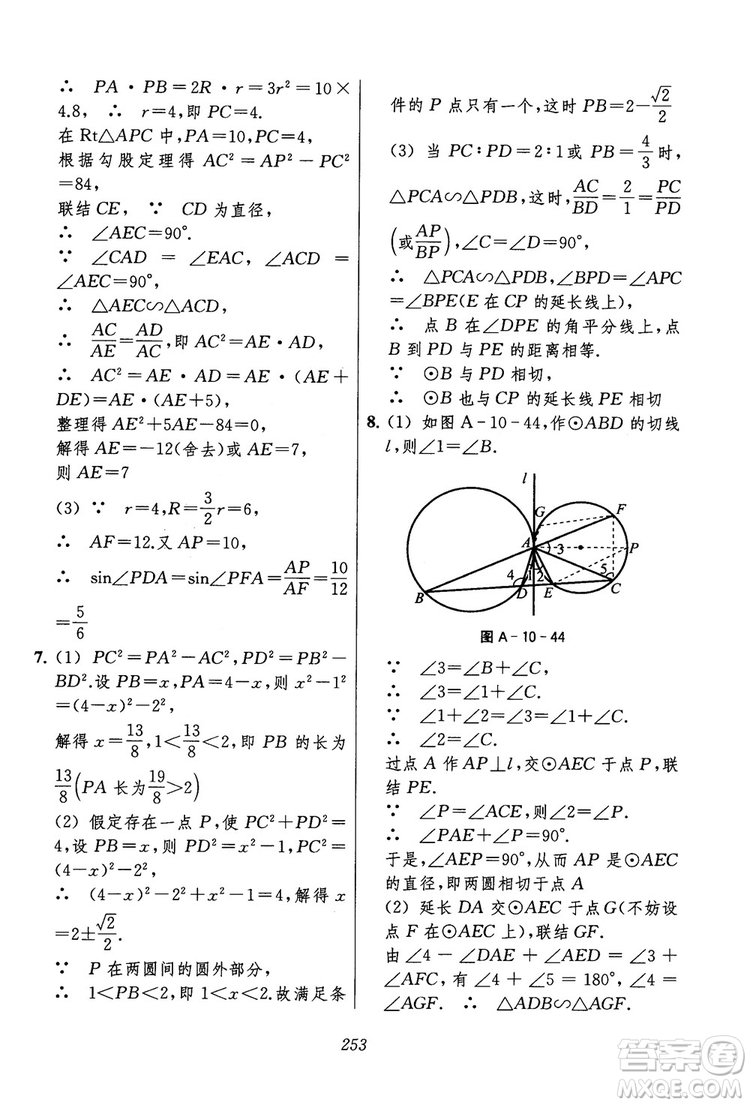 ∴ PA·PB=2R·r=3r²=10×
4.8, ∴ r=4,即 PC=4.
在 Rt△APC 中,PA=10,PC=4,
根据勾股定理得 AC²=AP²-PC²
=84,
联结 CE, ∵ CD 为直径,
∴ ∠AEC=90°.
∵ ∠CAD = ∠EAC, ∠ACD =
∠AEC=90°,
∴ △AEC∽△ACD,
∴ AC/AE=AD/AC,即 AC²=AE·AD,
∴ AC²=AE·AD=AE·(AE+
DE)=AE·(AE+5),
整理得 AE²+5AE-84=0,
解得 AE=-12(舍去)或 AE=7,
则 AE=7
(3) ∵ r=4,R=3/2r=6,
∴ AF=12.又 AP=10,
∴ sin∠PDA=sin∠PFA=AP/AF=10/12
=5/6
7. (1) PC²=PA²-AC²,PD²=PB²-
BD².设 PB=x,PA=4-x,则 x²-1²
=(4-x)²-2²,
解得 x=13/8,1<13/8<2,即 PB 的长为
13/8(PA 长为19/8>2)
(2) 假定存在一点 P,使 PC²+PD²=
4,设 PB=x,则 PD²=x²-1,PC²=
(4-x)²-2²,
∴ (4-x)²-2²+x²-1=4,解得 x
=2±√2/2.
∵ P 在两圆间的圆外部分,
∴ 1<PB<2,即 1<x<2.故满足条
件的 P 点只有一个,这时 PB=2-√2/2
(3) 当 PC∶PD=2∶1或 PB=4/3时,
△PCA∽△PDB,这时,AC/BD=2/1=PC/PD
(或AP/BP),∠C=∠D=90°,
∴ △PCA∽△PDB,∠BPD=∠APC
=∠BPE(E 在 CP 的延长线上),
∴ 点 B 在∠DPE 的角平分线上,点
B 到 PD 与 PE 的距离相等.
∵ ⊙B 与 PD 相切,
∴ ⊙B 也与 CP 的延长线 PE 相切
8. (1) 如图 A-10-44,作⊙ABD 的切线
l,则∠1=∠B.
l
G
F
A
3
P
4
1
2
5
B
D
E
C
图 A-10-44
∵ ∠3=∠B+∠C,
∴ ∠3=∠1+∠C.
∵ ∠1+∠2=∠3=∠1+∠C,
∴ ∠2=∠C.
过点 A 作 AP⊥l,交⊙AEC 于点 P,联
结 PE.
∵ ∠P=∠ACE,则∠2=∠P.
∴ ∠PAE+∠P=90°,
于是,∠AEP=90°,从而 AP 是⊙AEC
的直径,即两圆相切于点 A
(2) 延长 DA 交⊙AEC 于点G(不妨设
点 F 在⊙AEC 上),联结 GF.
由∠4 = ∠DAE + ∠AED = ∠3 +
∠AFC, 有 ∠4 + ∠5 = 180°, ∠4 =
∠AGF. ∴ △ADB∽△AGF.
253
答案圈
MXQE.COM